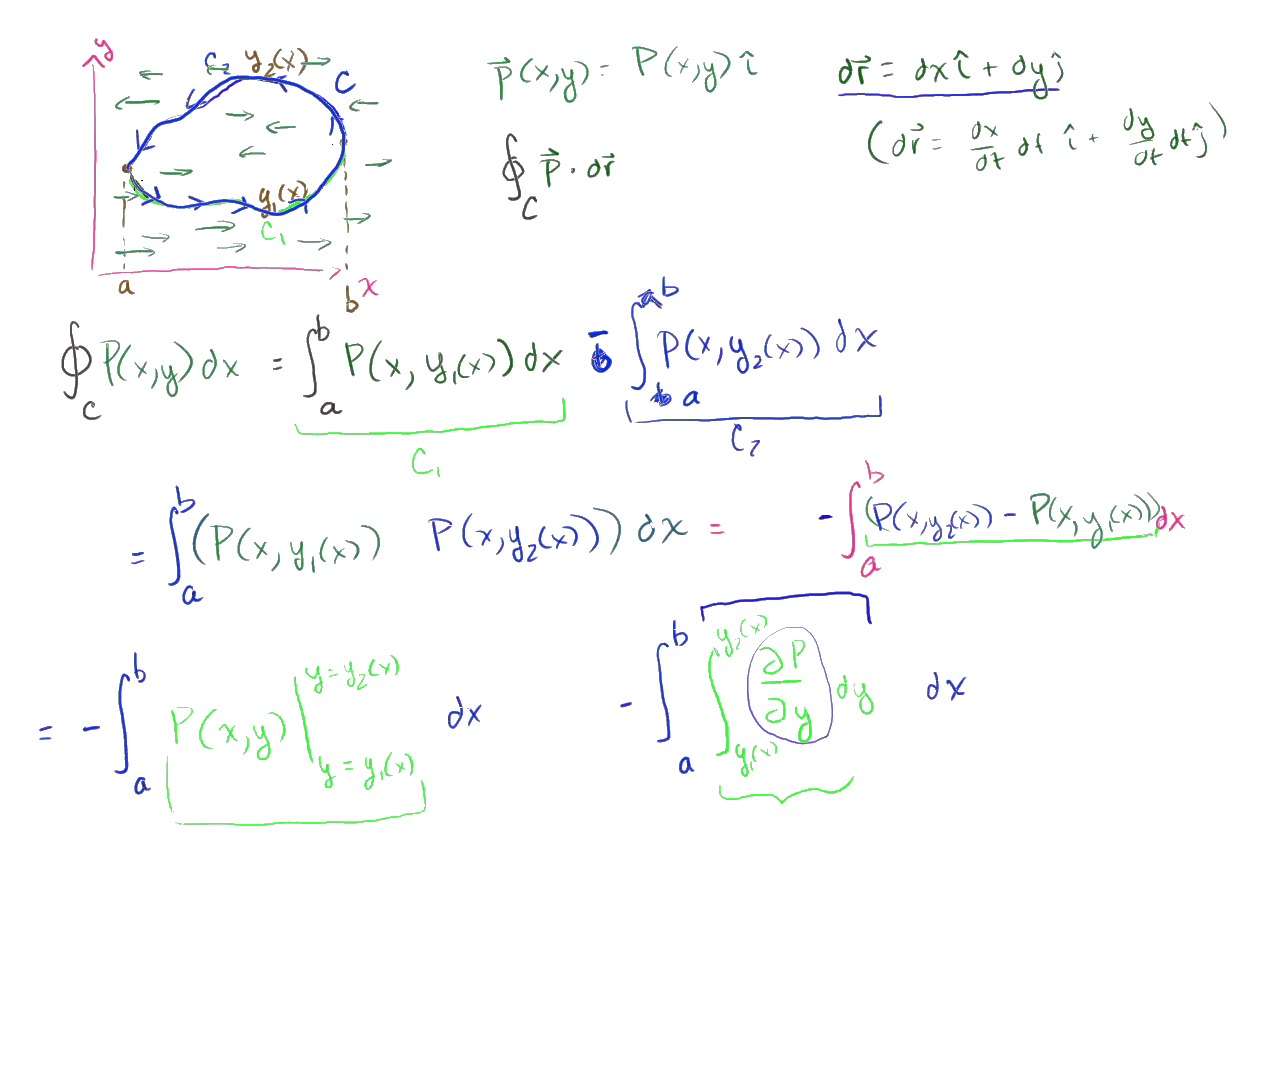 y
C₂ y₂(x)
C
y₁(x)
C₁
a
b x
P⃗(x,y) = P(x,y) î
dr⃗ = dx î + dy ĵ
(dr⃗ = dx/dt dt î + dy/dt dt ĵ)
∮_C P⃗ · dr⃗
∮_C P(x,y) dx = ∫_a^b P(x, y₁(x)) dx − ∫_a^b P(x, y₂(x)) dx
C₁ C₂
= ∫_a^b (P(x, y₁(x)) P(x, y₂(x))) dx = − ∫_a^b (P(x, y₂(x)) − P(x, y₁(x))) dx
= − ∫_a^b P(x,y) |_{y = y₁(x)}^{y = y₂(x)} dx − ∫_a^b ∫_{y₁(x)}^{y₂(x)} ∂P/∂y dy dx